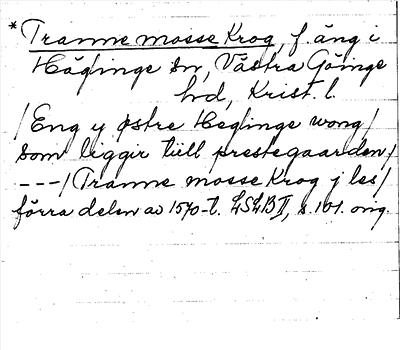 *Tranne mosse Krog, f. äng i
Häglinge sn, Västra Göinge
hd, Krist. l.
/Eng y østre Heglinge wong/
som liggir till prestegaarden/
---/Tranne mosse Krog j les/
förra delen av 1570-t. LSLB II, s. 101. orig.